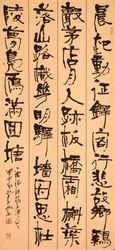 晨起動征鐸客行悲故鄉
雞聲茅店月人跡板橋霜槲葉
落山路枳花明驛牆因思杜
陵夢鳧雁滿回塘